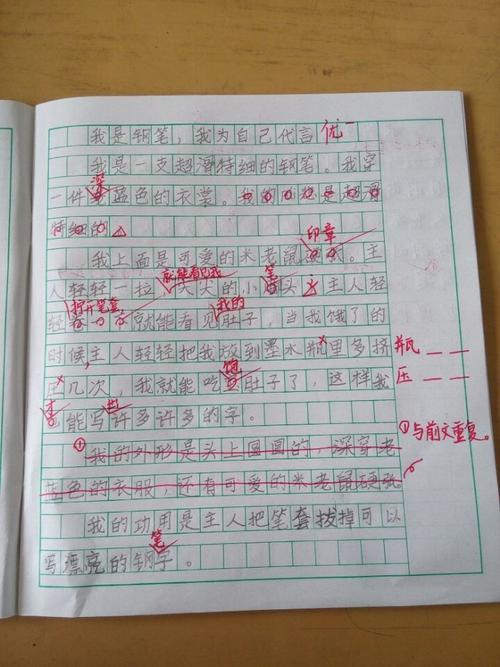 我是钢笔，我为自己代言 优一
我是一支超滑特细的钢笔。我穿
深
一件 蓝色的衣裳。我的 是超滑
特细的
印章
我上面是可爱的米老鼠 。主
就能看见我 笔
人轻轻一拉， 尖尖的小 头 主人轻
拧开笔套 我的
轻 就能看见肚子，当我饿了的
时候，主人轻轻把我放到墨水瓶里多挤 瓶
饱
压几次，我就能吃 肚子了，这样我 压
出
能写许多许多的字。
①与前文重复。
我的外形是头上圆圆的，深穿老
蓝色的衣服，还有可爱的米老鼠硬张
我的功用是主人把笔套拔掉可以
笔
写漂亮的钢字。